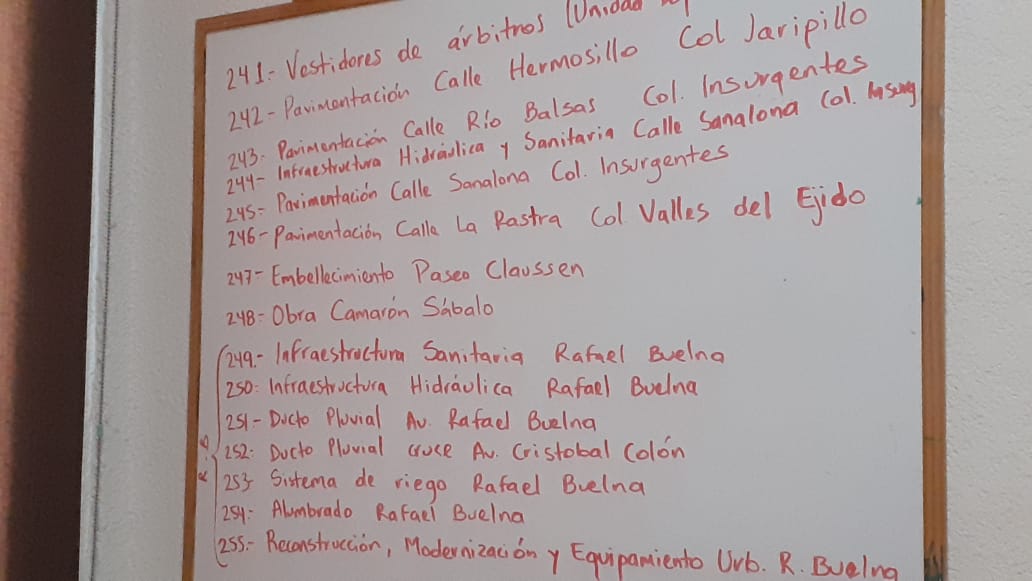 241.- Vestidores de árbitros (Unidad
242- Pavimentación Calle Hermosillo Col Jaripillo
243- Pavimentación Calle Río Balsas Col. Insurgentes
244- Infraestructura Hidráulica y Sanitaria Calle Sanalona Col. Insurg
245- Pavimentación Calle Sanalona Col. Insurgentes
246- Pavimentación Calle La Rastra Col Valles del Ejido
247- Embellecimiento Paseo Claussen
248- Obra Camarón Sábalo
249.- Infraestructura Sanitaria Rafael Buelna
250- Infraestructura Hidráulica Rafael Buelna
251- Ducto Pluvial Av. Rafael Buelna
252- Ducto Pluvial cruce Av. Cristobal Colón
253- Sistema de riego Rafael Buelna
254- Alumbrado Rafael Buelna
255.- Reconstrucción, Modernización y Equipamiento Urb. R. Buelna